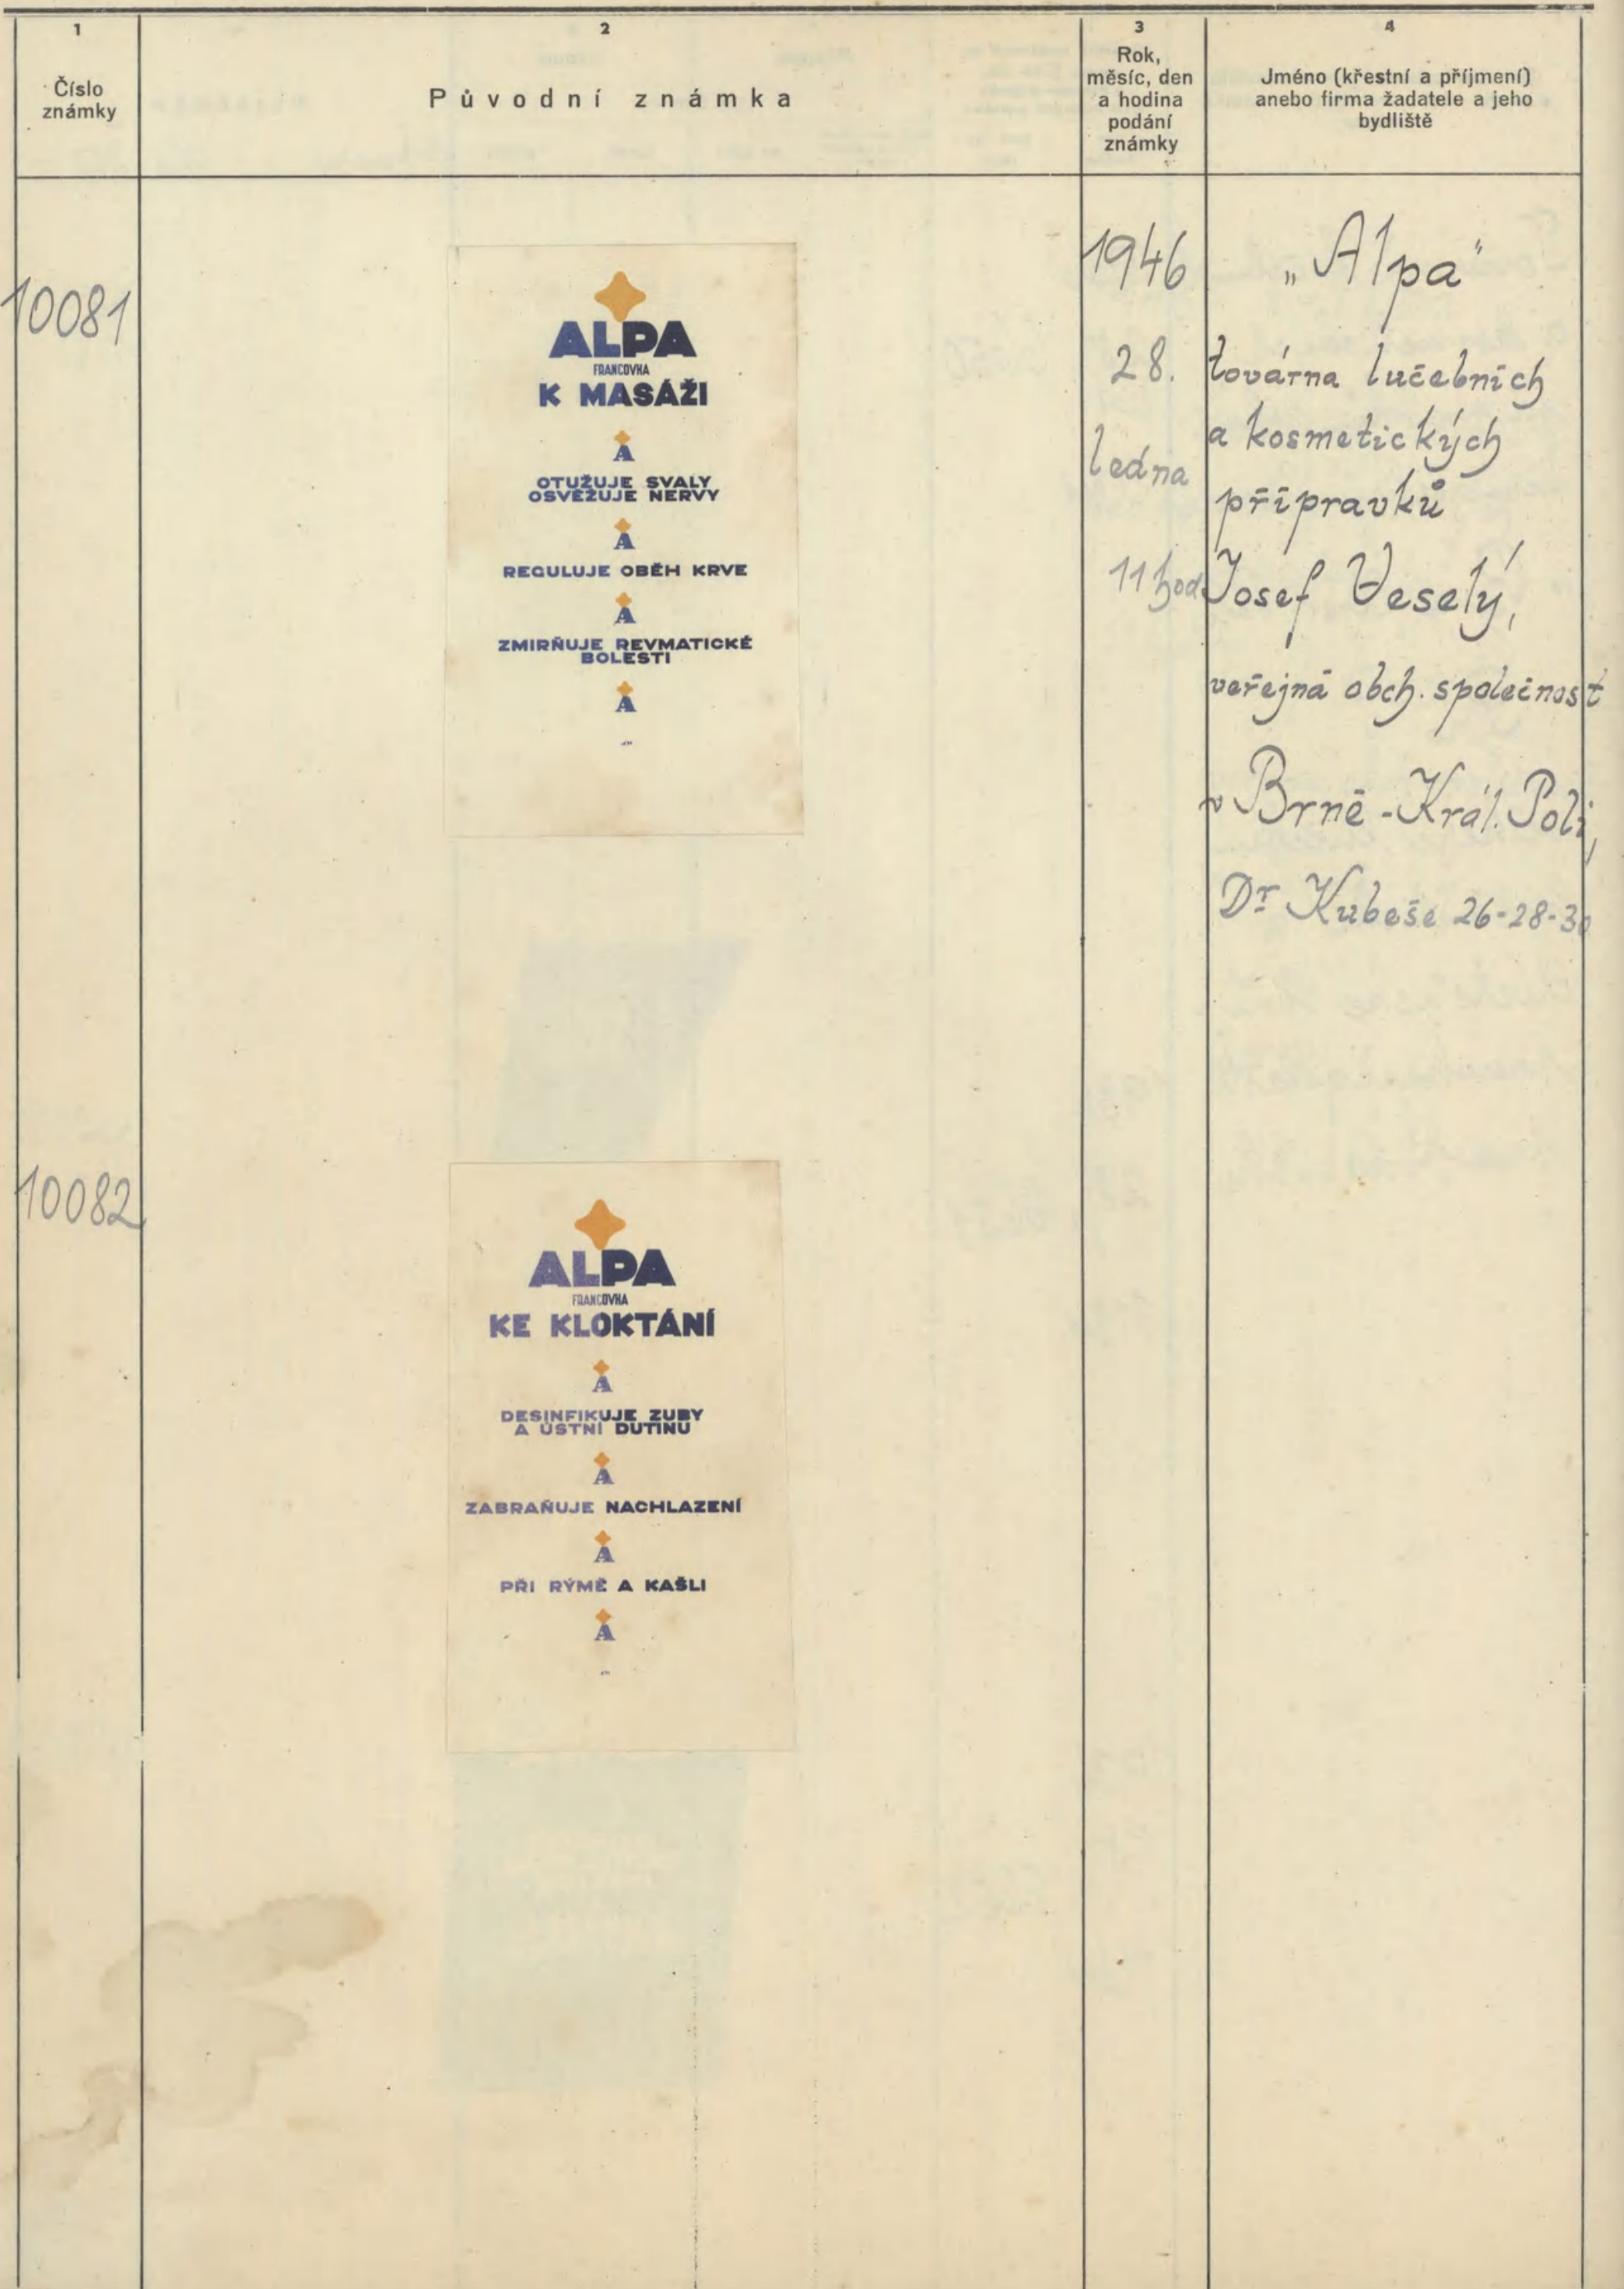 1
Číslo
známky
2
Původní známka
3
Rok,
měsíc, den
a hodina
podání
známky
4
Jméno (křestní a příjmení)
anebo firma žadatele a jeho
bydliště
10081
ALPA
FRANCOVKA
K MASÁŽI
A
OTUŽUJE SVALY
OSVĚŽUJE NERVY
A
REGULUJE OBĚH KRVE
A
ZMIRŇUJE REVMATICKÉ
BOLESTI
A
1946
28.
ledna
11 hod
„Alpa“
továrna lučebních
a kosmetických
přípravků
Josef Veselý,
veřejná obch. společnost
v Brně - Král. Poli,
Dr Kubeše 26-28-30
10082
ALPA
FRANCOVKA
KE KLOKTÁNÍ
A
DESINFIKUJE ZUBY
A ÚSTNÍ DUTINU
A
ZABRAŇUJE NACHLAZENÍ
A
PŘI RÝMĚ A KAŠLI
A